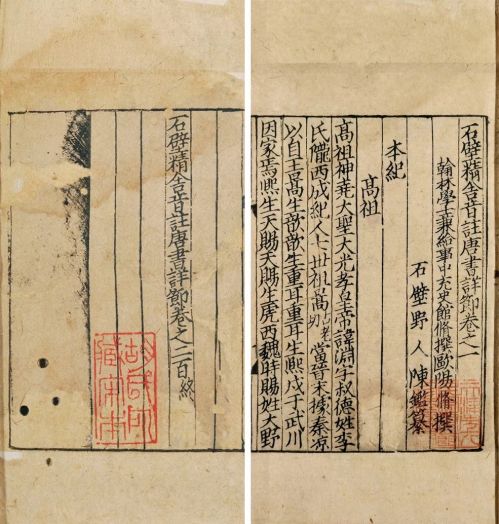 石壁精舍音註唐書詳節卷之一
翰林學士兼給事中充史館脩撰歐陽脩撰
石壁野人陳鑑纂
本紀
高祖
高祖神堯大聖大光孝皇帝諱淵字叔德姓李
氏隴西成紀人七世祖暠當晉末據秦凉
以自王暠生歆歆生重耳重耳生熙戍于武川
因家焉熙生天賜天賜生虎西魏時賜姓大野
石壁精舍音註唐書詳節卷之二百終